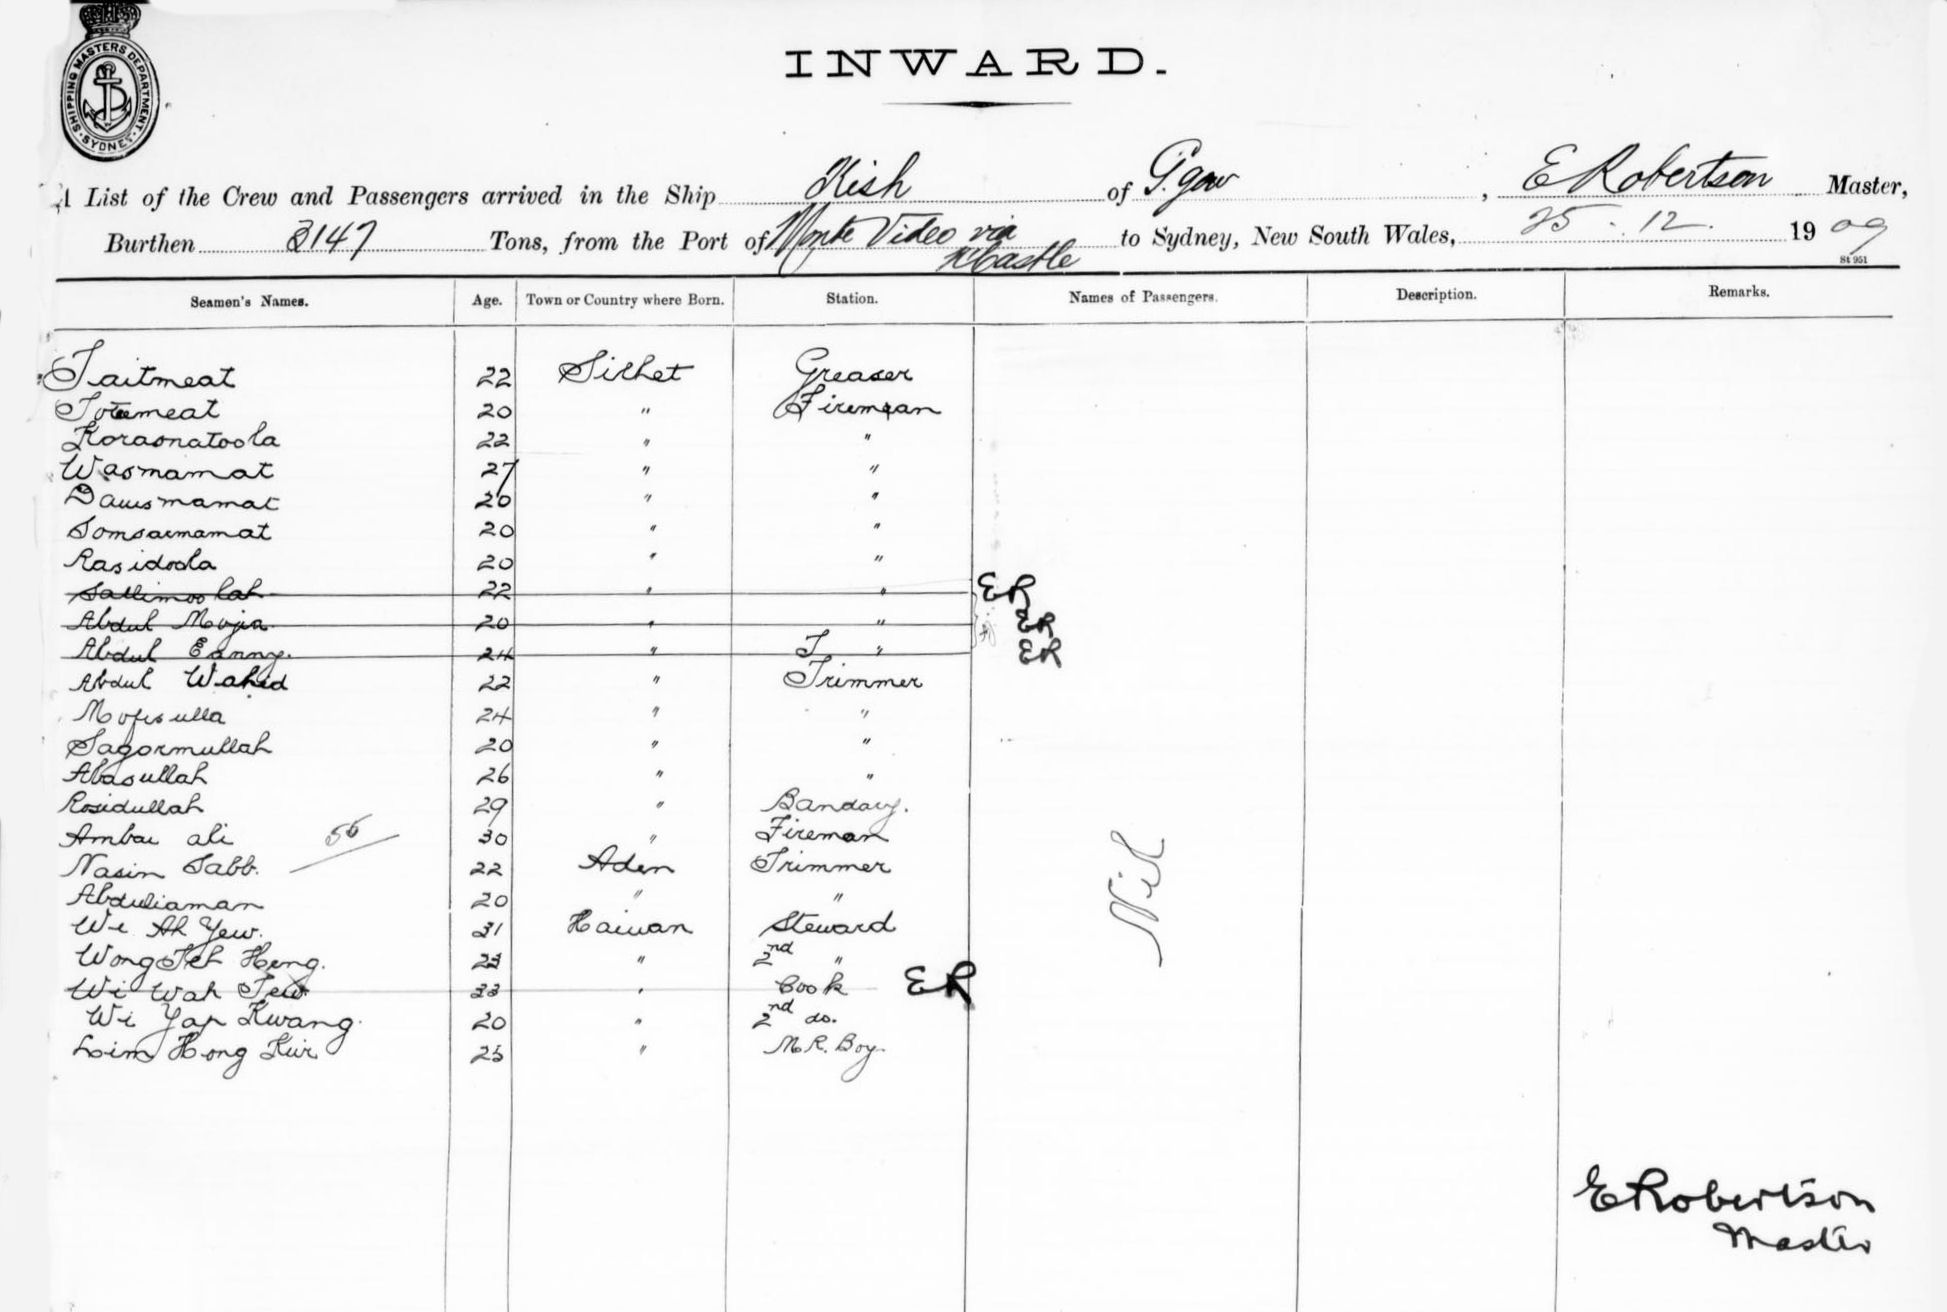 SHIPPING MASTERS DEPARTMENT
SYDNEY
INWARD.
A List of the Crew and Passengers arrived in the Ship Kish of G.gow, E Robertson Master,
Burthen 3147 Tons, from the Port of Monte Video via N'Castle to Sydney, New South Wales, 25-12 1909
St 951
Seamen's Names. Age. Town or Country where Born. Station. Names of Passengers. Description. Remarks.
Taitmeat 22 Silhet Greaser
20 " Fireman
Koraonatoola 22 " "
Wasmamat 27 " "
Dauismamat 20 " "
Somsaemamat 20 " "
Rasidoola 20 " "
Sallimoolah 22 " " ER
Abdul Mojia 20 " " ER
Abdul Eanny. 24 " T " ER
Abdul Wahid 22 " Trimmer
Mofisulla 24 " "
Sagormullah 20 " "
Abasullah 26 " "
Rosidullah 29 " Bandary.
Ambau ali 56 30 " Fireman
Nasin Sabb. 22 Aden Trimmer
Abduliaman 20 " "
Wi Ah Yew. 31 Hainan Steward
Wong Teh Heng. " 2nd "
Wi Wah Tew 33 " Cook ER
Wi Yap Kwang. 20 " 2nd do.
Lim Hong Kir 25 " M.R. Boy.
Nil
E Robertson
Master